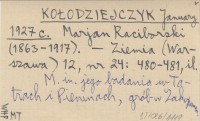 KOŁODZIEJCZYK January
1927 c. Marjan Raciborski
(1863-1917). – Ziemia (War-
szawa) 12, nr 24: 480-481, il.
M. in. jego badania w Ta-
trach i Pieninach, grób w Zakop.
MT